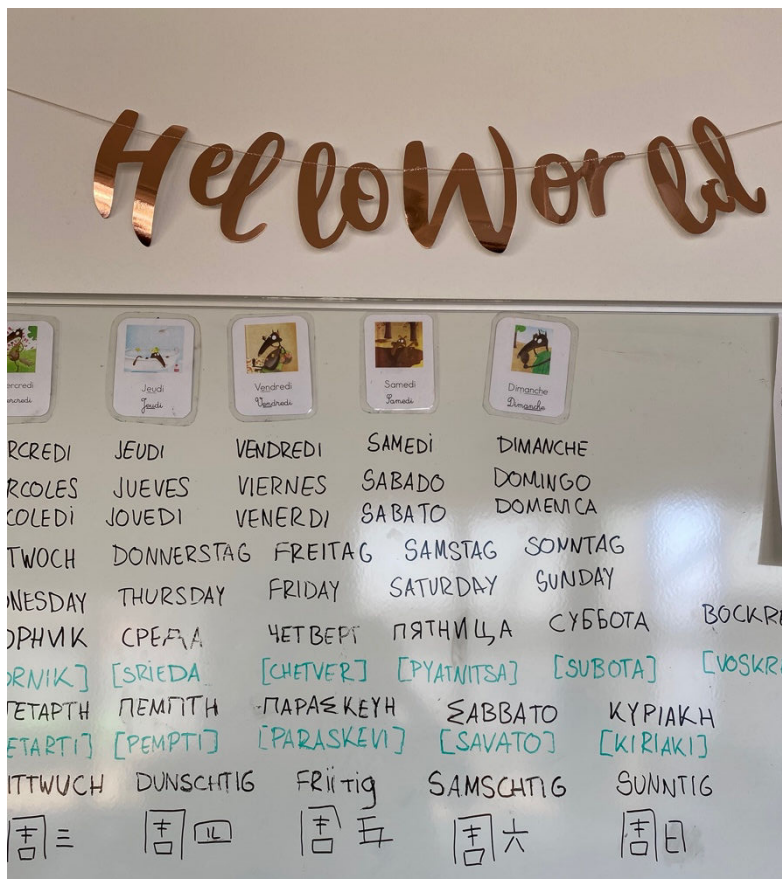 Hello World
ercredi Jeudi Vendredi Samedi Dimanche
ercredi Jeudi Vendredi Samedi Dimanche
RCREDI JEUDI VENDREDI SAMEDI DIMANCHE
RCOLES JUEVES VIERNES SABADO DOMINGO
COLEDI JOVEDI VENERDI SABATO DOMENICA
TWOCH DONNERSTAG FREITAG SAMSTAG SONNTAG
NESDAY THURSDAY FRIDAY SATURDAY SUNDAY
ОРНИК СРЕДА ЧЕТВЕРГ ПЯТНИЦА СУББОТА ВОСКРЕ
ORNIK] [SRIEDA [CHETVER] [PYATNITSA] [SUBOTA] [VOSKR
ΤΕΤΑΡΤΗ ΠΕΜΠΤΗ ΠΑΡΑΣΚΕΥΗ ΣΑΒΒΑΤΟ ΚΥΡΙΑΚΗ
ETARTI] [PEMPTI] [PARASKEVI] [SAVATO] [KIRIAKI]
ITTWUCH DUNSCHTIG FRIITIG SAMSCHTIG SUNNTIG
周三 周四 周五 周六 周日